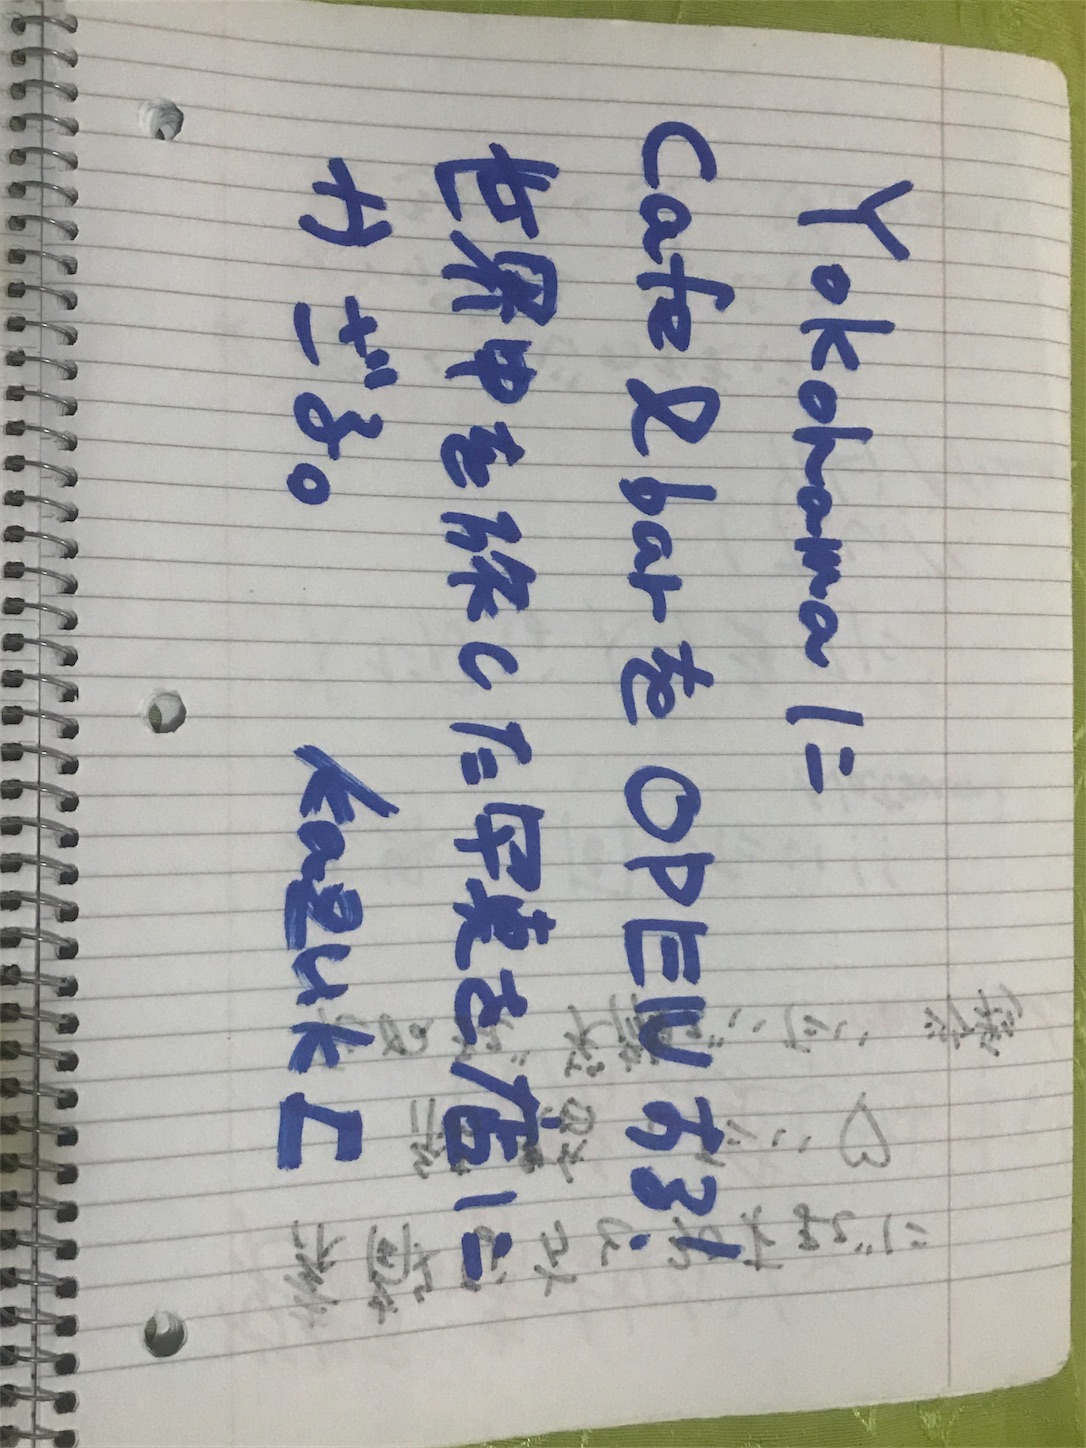 Yokohamaに
Cafe & barをOPENする!
世界中を旅した写真を店に
かざる。
kazuki